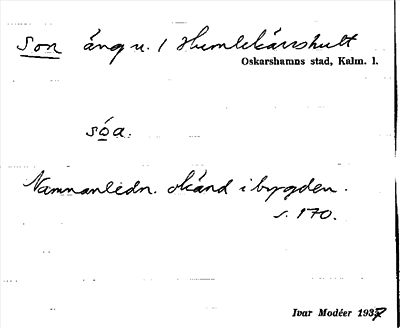 Son äng u. 1 Humlekärrshult
Oskarshamns stad, Kalm. l.
sóa.
Namnanledn. okänd i bygden.
s. 170.
Ivar Modéer 1937